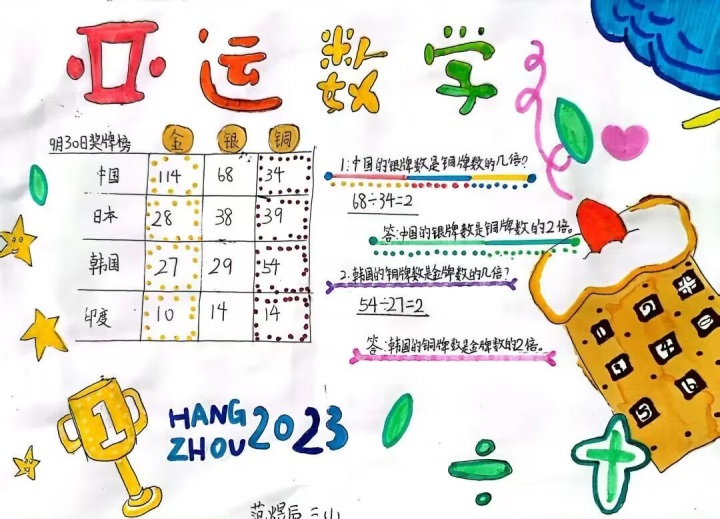 亚运数学
9月30日奖牌榜 金 银 铜
中国 114 68 34
日本 28 38 39
韩国 27 29 54
印度 10 14 14
1.中国的银牌数是铜牌数的几倍?
68÷34=2
答:中国的银牌数是铜牌数的2倍。
2.韩国的铜牌数是金牌数的几倍?
54÷27=2
答:韩国的铜牌数是金牌数的2倍。
1
HANG
ZHOU 2023
÷